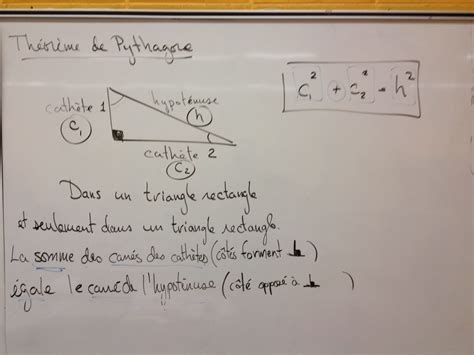 Théorème de Pythagore
c₁² + c₂² = h²
cathète 1
c₁
hypoténuse
h
cathète 2
c₂
Dans un triangle rectangle
et seulement dans un triangle rectangle.
La somme des carrés des cathètes (côtés forment ⊾)
égale le carré de l'hypoténuse (côté opposé à ⊾)